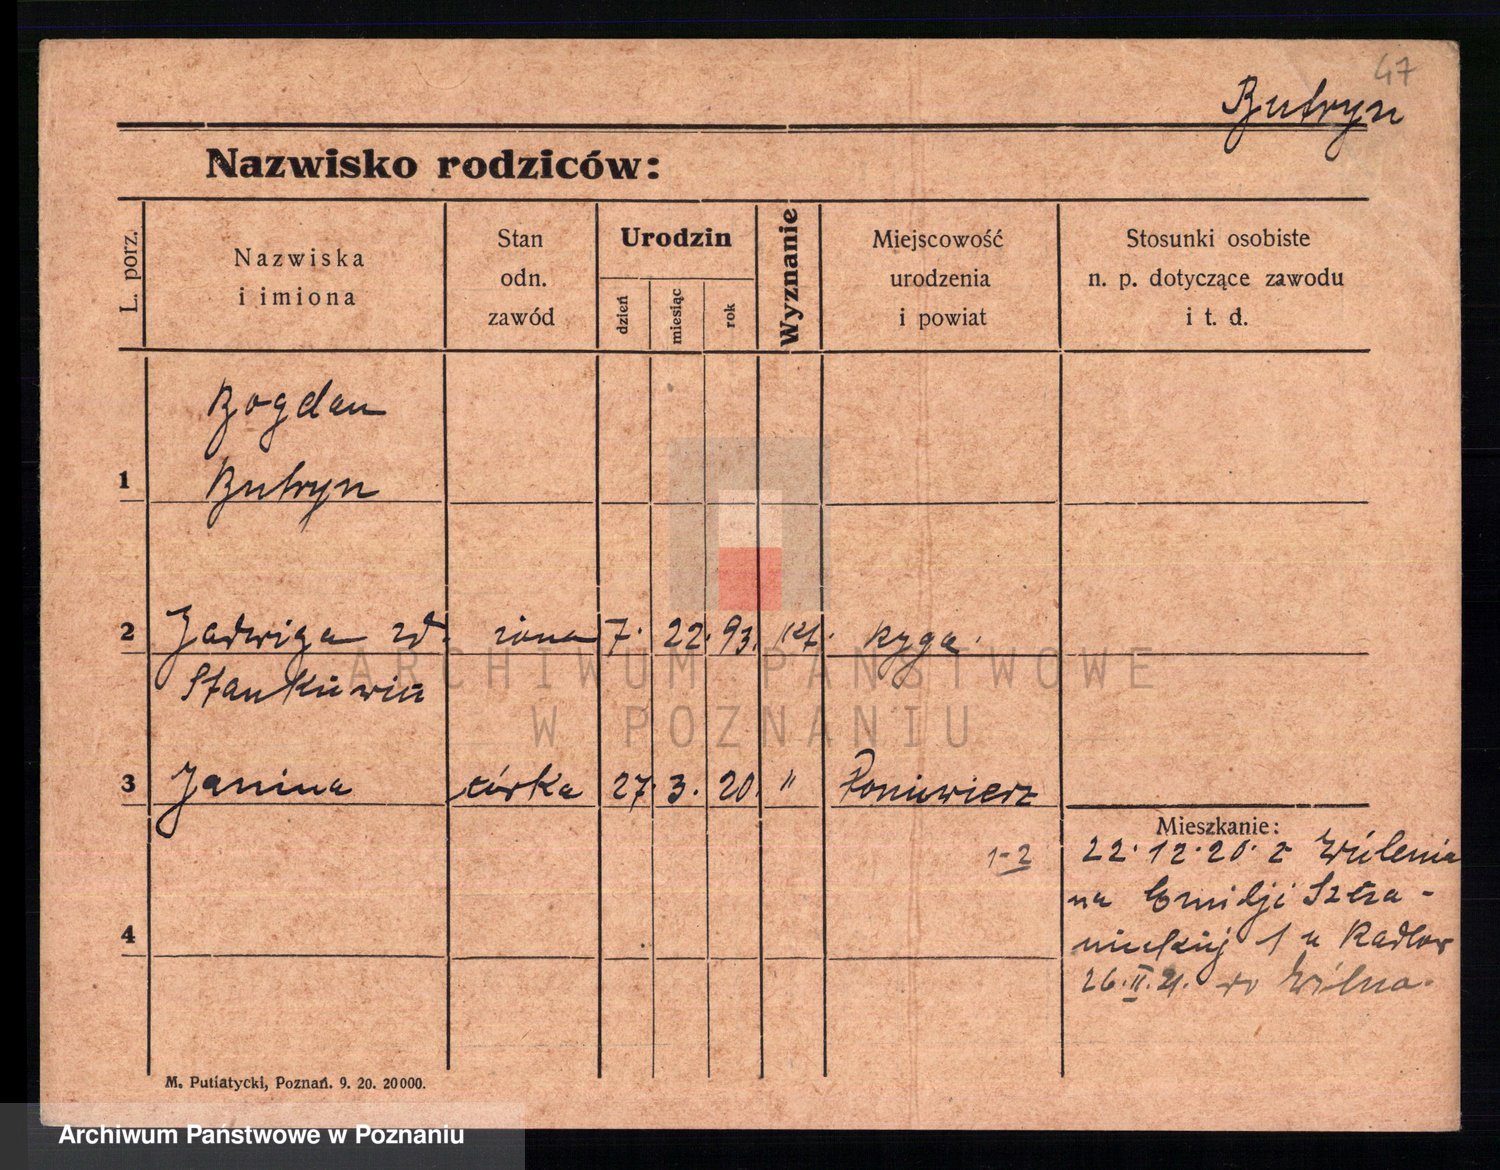 47
Butryn
Nazwisko rodziców:
L. porz.
Nazwiska
i imiona
Stan
odn.
zawód
Urodzin
dzień
miesiąc
rok
Wyznanie
Miejscowość
urodzenia
i powiat
Stosunki osobiste
n. p. dotyczące zawodu
i t. d.
Bogdan
1 Butryn
2 Jadwiga zd. żona 7. 22. 93. kt. Ryga.
Stankiewicz
3 Janina córka 27. 3. 20. " Poniewierz
Mieszkanie:
1-2
22. 12. 20. z Wilenia
na Emilji Szcza-
nieckiej 1 u Radlow
4
26. II. 21. do Wilna.
M. Putiatycki, Poznań. 9. 20. 20000.
ARCHIWUM PAŃSTWOWE
W POZNANIU
Archiwum Państwowe w Poznaniu